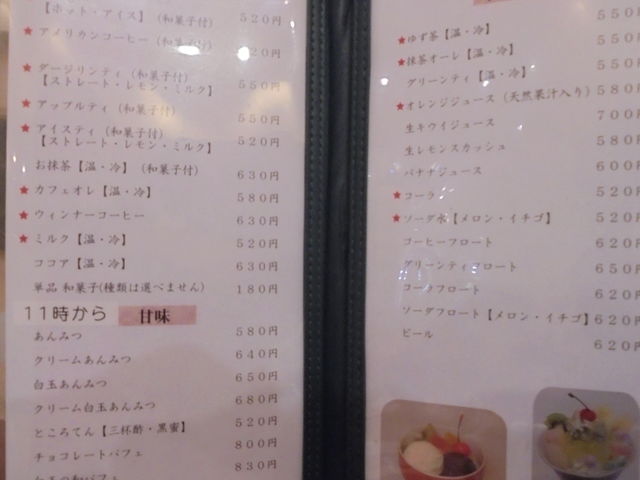 【ホット・アイス】(和菓子付) 520円
★アメリカンコーヒー(和菓子付) 20円
★ダージリンティ(和菓子付)
【ストレート・レモン・ミルク】 550円
★アップルティ(和菓子付) 550円
★アイスティ(和菓子付)
【ストレート・レモン・ミルク】 520円
お抹茶【温・冷】(和菓子付) 630円
★カフェオレ【温・冷】 580円
★ウィンナーコーヒー 630円
★ミルク【温・冷】 520円
ココア【温・冷】 630円
単品 和菓子(種類は選べません) 180円
11時から 甘味
あんみつ 580円
クリームあんみつ 640円
白玉あんみつ 650円
クリーム白玉あんみつ 680円
ところてん【三杯酢・黒蜜】 520円
チョコレートパフェ 800円
830円
★ゆず茶【温・冷】 550円
★抹茶オーレ【温・冷】 550円
グリーンティ【温・冷】 550円
★オレンジジュース(天然果汁入り) 580円
生キウイジュース 700円
生レモンスカッシュ 580円
バナナジュース 600円
★コーラ 520円
★ソーダ水【メロン・イチゴ】 520円
コーヒーフロート 620円
グリーンティフロート 650円
コーラフロート 620円
ソーダフロート【メロン・イチゴ】 620円
ビール 620円